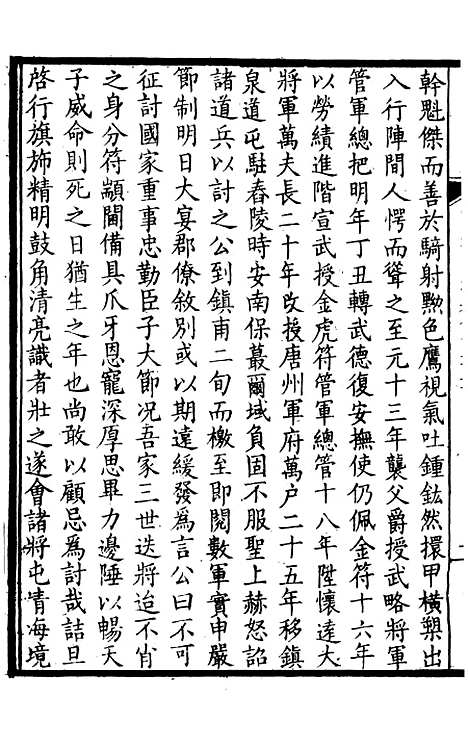 幹魁傑而善於騎射黝色鷹視氣吐鍾鈜然擐甲橫槊出
入行陣間人愕而聳之至元十三年襲父爵授武略將軍
管軍總把明年丁丑轉武德復安撫使仍佩金符十六年
以勞績進階宣武授金虎符管軍總管十八年陞懷逺大
將軍萬夫長二十年改授唐州軍府萬户二十五年移鎮
泉道屯駐舂陵時安南保蕞爾域負固不服聖上赫怒詔
諸道兵以討之公到鎮甫二旬而檄至即閱數軍實申嚴
節制明日大宴郡僚敘別或以期遠緩發為言公曰不可
征討國家重事忠勤臣子大節況吾家三世迭將迨不肖
之身分符顓閫備具爪牙恩寵深厚思畢力邊陲以暢天
子威命則死之日猶生之年也尚敢以顧忌為討哉詰旦
啓行旗斾精明鼓角清亮識者壯之遂會諸將屯青海境